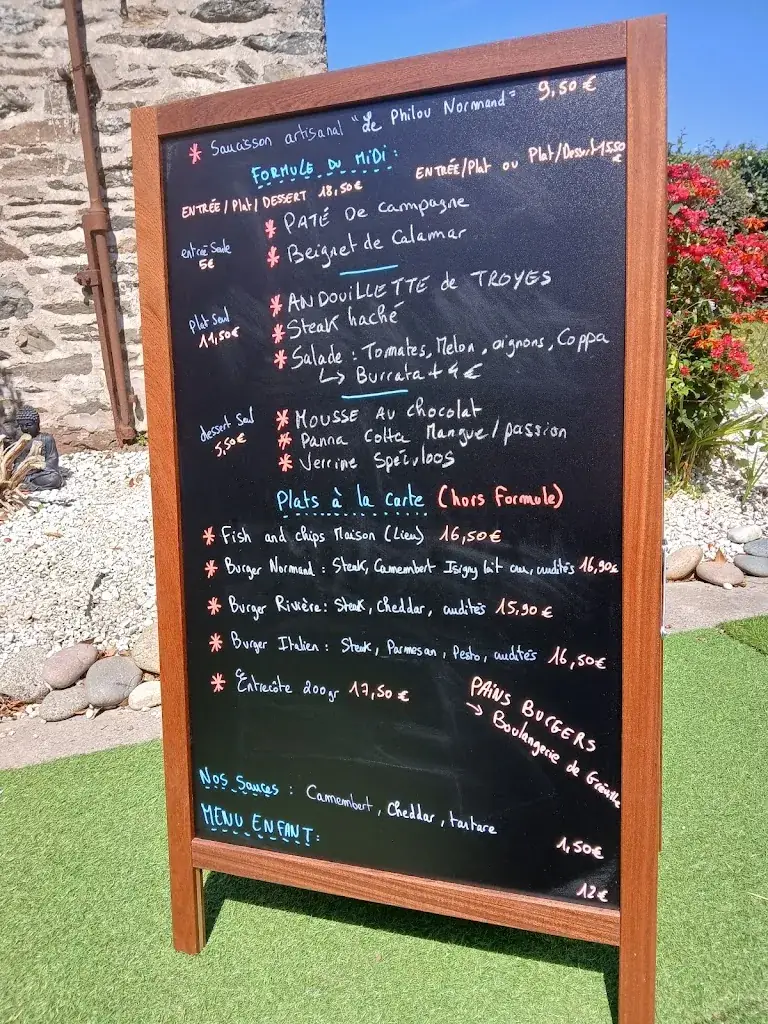 * Saucisson artisanal "Le Philou Normand" 9,50€
FORMULE DU MIDI:
ENTRÉE/Plat/DESSERT 18,50€
ENTRÉE/Plat ou Plat/Dessert 15,50€
entrée Seule 5€
* PATÉ De Campagne
* Beignet de Calamar
plat Seul 11,50€
* ANDOUILLETTE de TROYES
* Steak haché
* Salade : Tomates, Melon, oignons, Coppa
↳ Burrata + 4€
dessert Seul 5,50€
* MOUSSE AU chocolat
* Panna Cotta Mangue/passion
* Verrine Spéculoos
Plats à la carte (hors Formule)
* Fish and chips Maison (Lieu) 16,50€
* Burger Normand : Steak, Camembert Isigny lait cru, crudités 16,90€
* Burger Rivière : Steak, Cheddar, crudités 15,90€
* Burger Italien : Steak, Parmesan, Pesto, crudités 16,50€
* Entrecôte 200gr 17,50€
PAINS BURGERS
→ Boulangerie de
Nos Sauces : Camembert, Cheddar, tartare 1,50€
MENU ENFANT: 12€